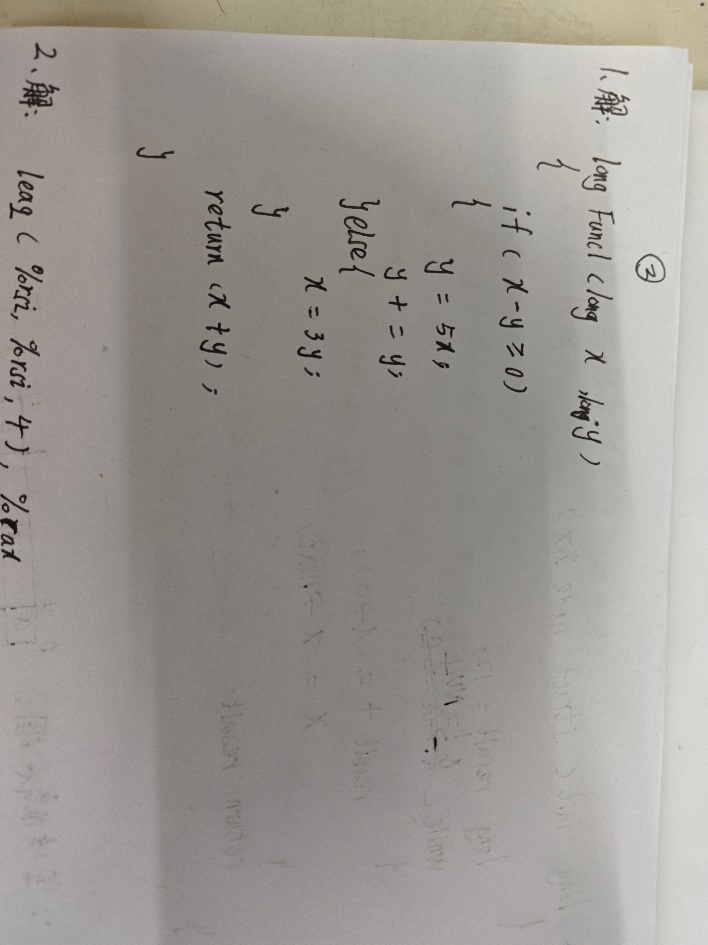 ③
1、解: long Func1 (long x, long y)
{
if ( x-y ≥ 0)
{
y = 5x;
y + = y;
}else{
x = 3y;
}
return (x+y);
}
2、解: leaq ( %rsi, %rsi, 4), %rax